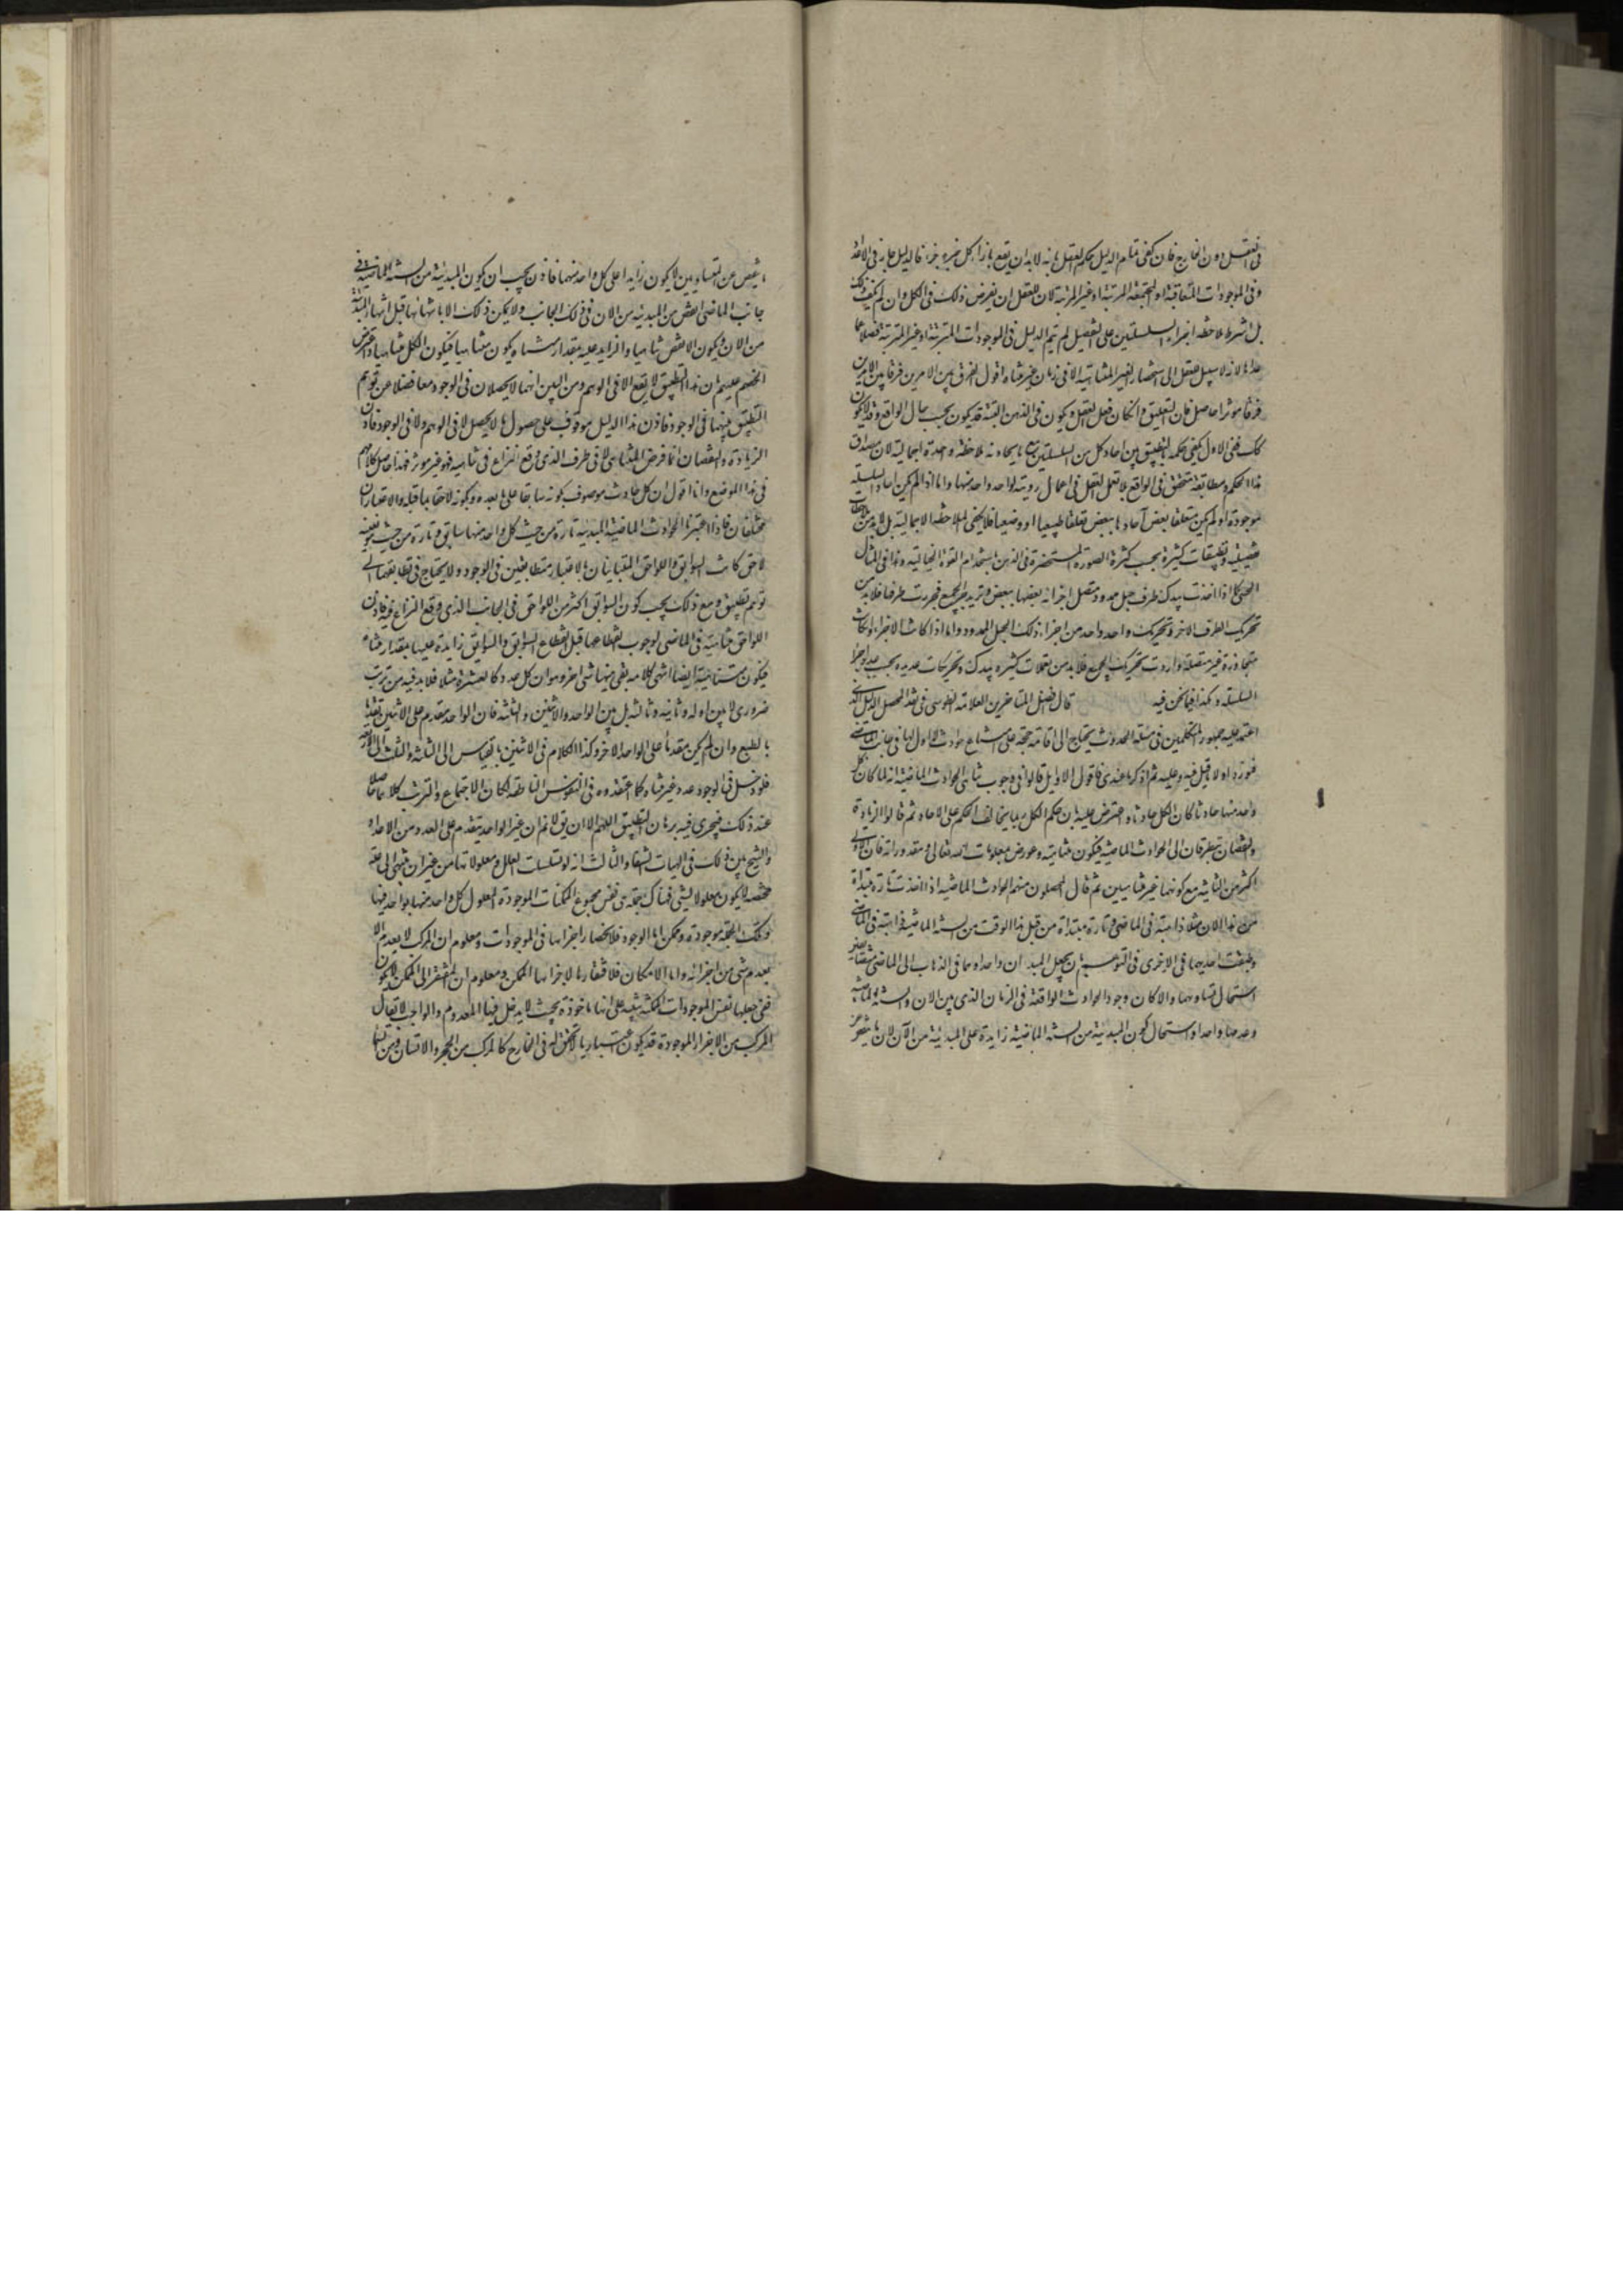 فى العقل دون الخارج فان كفى فى تمام الدليل حكم العقل بانه لا بد ان يقع بازاء كل جزء جزء فالدليل جار فى الاعداد
وفى الموجودات المتعاقبة او المجتمعة المرتبة او غير المرتبة لان للعقل ان يفرض ذلك فى الكل وان لم يكف ذلك
بل اشترط ملاحظة اجزاء السلسلتين على التفصيل لم يتم الدليل فى الموجودات المترتبة او غير المترتبة فضلا عما
عداها لانه لا سبيل للعقل الى استحضار الغير المتناهية الا فى زمان غير متناه اقول الفرق بين الامرين فرقا بين الامرين
فرقا موثرا حاصل فان التطبيق وان كان فعل العقل ويكون فى الذهن البتة قد يكون بحسب حال الواقع وقد لا يكون
كك ففى الاول يكفى حكمه بالتطبيق بين احاد كل من السلسلتين ملاحظة واحدة اجمالية لان مصداق
هذا الحكم ومطابقه متحقق فى الواقع بلا تعمل العقل فى اعمال روية لواحد واحد منها واما اذا لم يكن احاد السلسلة
موجودة او لم يكن متعلقا بعض آحادها ببعض تعلقا طبيعيا او وضعيا فلا يكفى الملاحظة الاجمالية بل لا بد من ملاحظات
تفصيلية وتطبيقات كثيرة بحسب كثرة الصورة المستحضرة فى الذهن باستخدام القوة الخيالية وهذا فى المثال
الحسى كما اذا اخذت بيدك طرف حبل ممدود متصل اجزائه بعضها ببعض وتريد جر الجميع فجررت طرفا فلا بد من
تحريك الطرف الاخر وتحريك واحد واحد من اجزاء ذلك الحبل الممدود واما اذا كانت الاجزاء لو كانت
متجاورة غير متصلة واردت تحريك الجميع فلا بد من تعملات كثيرة بيدك وتحريكات عديدة بحسب عدد اجزاء
السلسلة وهكذا فيما نحن فيه قال افضل المتاخرين العلامة الطوسى فى نقد المحصل الدليل الذى
اعتمد عليه جمهور المتكلمين فى مسئلة الحدوث يحتاج الى اقامة حجة على امتناع حوادث لا اول لها فى جانب الماضى
فنورد اولا ما قيل فيه وعليه ثم اذكر ما عندى فاقول الاوايل قالوا فى وجوب تناهى الحوادث الماضية انه لما كان كل
واحد منها حادثا كان الكل حادثا واعترض عليه بان حكم الكل ربما يخالف الحكم على الاحاد ثم قالوا الزيادة
والنقصان يتطرقان الى الحوادث الماضية فيكون متناهية وعورض بمعلومات الله تعالى ومقدوراته فان الاولى
اكثر من الثانية مع كونهما غير متناهيين ثم قال المحصلون منهم الحوادث الماضية اذا اخذت تارة مبتداة
من الان مثلا ذاهبة فى الماضى وتارة مبتداة من قبل هذا الوقت من السنة الماضية ذاهبة فى الماضى
وطبقت احديهما فى الاخرى فى التوهم بان يجعل المبدءان واحدا وهما فى الذهاب الى الماضى متطابقين
استحال تساويهما والا كان وجود الحوادث الواقعة فى الزمان الذى بين الان والسنة الماضية
وعدمها واحدا واستحال كون المبدئية من السنة الماضية زايدة على المبدئية من الآن لان ما ينقص عن
ما ينقص عن المتساويين لا يكون زايدا على كل واحد منهما فاذن يجب ان يكون المبدئية من السنة الماضية فى
جانب الماضى انقص من المبدئية من الان فى ذلك الجانب ولا يمكن ذلك الا بانتهائها قبل انتهاء المبدئة
من الان ويكون الانقص متناهيا والزايد عليه بمقدار متناه يكون متناهيا فيكون الكل متناهيا واعترض
الخصم عليهم بان هذا التطبيق لا يقع الا فى الوهم ومن البين انهما لا يحصلان فى الوجود معا فضلا عن توهم
التطبيق بينهما فى الوجود فاذن هذا الدليل موقوف على حصول ما لا يحصل لا فى الوهم ولا فى الوجود فاذن
الزيادة والنقصان انما فرض المتناهى لا فى طرف الذى وقع النزاع فى تناهيه فهو غير موثر فهذا حاصل كلامهم
فى هذا الموضع وانا اقول ان كل حادث موصوف بكونه سابقا على ما بعده وبكونه لاحقا بما قبله والاعتباران
مختلفان فاذا اعتبرنا الحوادث الماضية المبدئية تارة من حيث كل واحد منها سابق وتارة من حيث هو بعينه
لاحق كانت السوابق واللواحق المتباينان بالاعتبار متطابقين فى الوجود ولا يحتاج فى تطابقهما الى
توهم تطبيق ومع ذلك يجب كون السوابق اكثر من اللواحق فى الجانب الذى وقع النزاع فيه فاذن
اللواحق متناهية فى الماضى لوجوب انقطاعها قبل انقطاع السوابق والسوابق زايدة عليها بمقدار متناه
فيكون متناهية ايضا انتهى كلامه بقى ههنا شى اخر وهو ان كل عدد كالعشرة مثلا فلا بد فيه من ترتب
ضرورى لا بين اوله وثانيه وثالثه بل بين الواحد والاثنين والثلثة فان الواحد متقدم على الاثنين تقدما
بالطبع وان لم يكن متقدما على الواحد الاخر وكذا الكلام فى الاثنين بالقياس الى الثلثة والثلثة الى الاربعة
فلو دخل فى الوجود عدد غير متناه كما اعتقدوه فى النفوس الناطقة لكان الاجتماع والترتب كلاهما حاصلا
عند ذلك فيجرى فيه برهان التطبيق اللهم الا ان يق لا نم ان غير الواحد يتقدم على العدد من الاعداد
والشيخ بين ذلك فى الهيات الشفا والثالث انه لو تسلسلت العلل ومعلولاتها من غير ان ينتهى الى علة
محضة لا يكون معلولا لشئ فهناك جملة هى نفس مجموع الممكنات الموجودة المعلول كل واحد منها بواحد فيها
وتلك الجملة موجودة وممكن اما الوجود فلانحصار اجزائها فى الموجودات ومعلوم ان المركب لا يعدم الا
بعدم شى من اجزائه واما الامكان فلافتقارها الاجزايها الممكن ومعلوم ان المفتقر الى الممكن لا يكون
ففى جعلها نفس الموجودات الممكنة تنبيه على انها ماخوذة بحيث لا يدخل فيها المعدوم والواجب لا تقال
المركب من الاجزاء الموجودة قد يكون اعتباريا لا تحقق له فى الخارج كالمركب من الحجر والانسان ومن